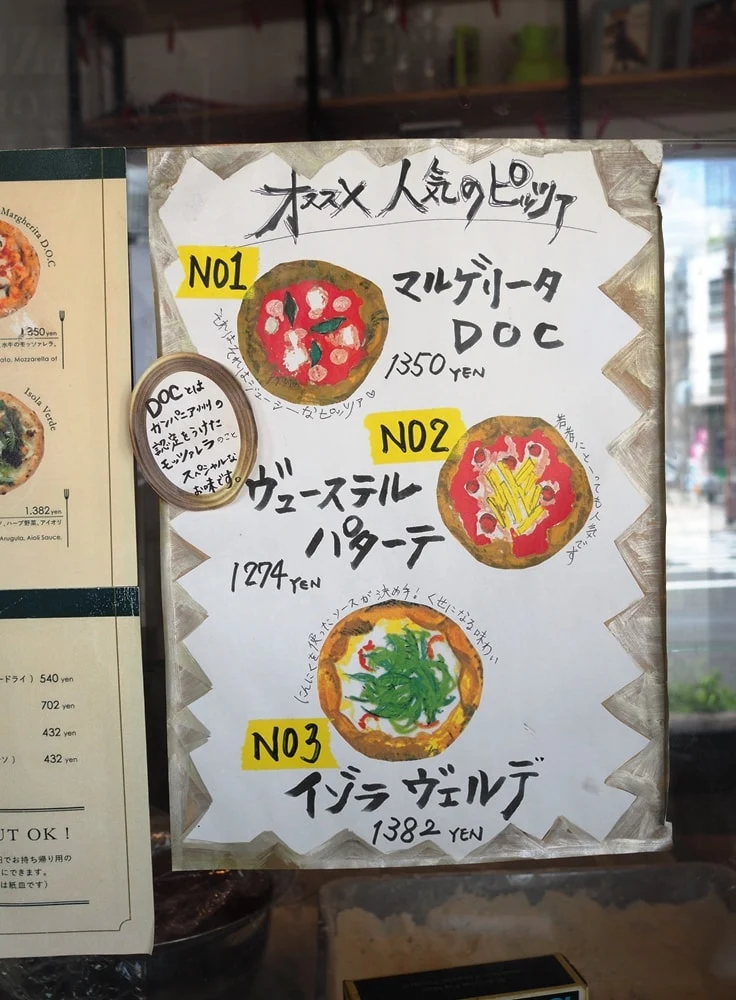 Margherita D.O.C
1350 yen
水牛のモッツァレラ、
Mozzarella of
Isola Verde
1,382 yen
ハーブ野菜、アイオリ
Arugula, Aioli Sauce,
ードライ ) 540 yen
702 yen
432 yen
) 432 yen
UT OK !
でお持ち帰り用の
にできます。
は紙皿です)
オススメ 人気のピッツァ
NO1
マルゲリータ
DOC
1350 YEN
それはそれはジューシーなピッツァ♡
DOCとは
カンパニア州の
認定をうけた
モッツァレラのこと
スペシャルな
お味です。
NO2
ヴューステル
パターテ
1274 YEN
若者にとーっても人気です
にんにくを使ったソースが決め手! くせになる味わい
NO3
イゾラ ヴェルデ
1382 YEN